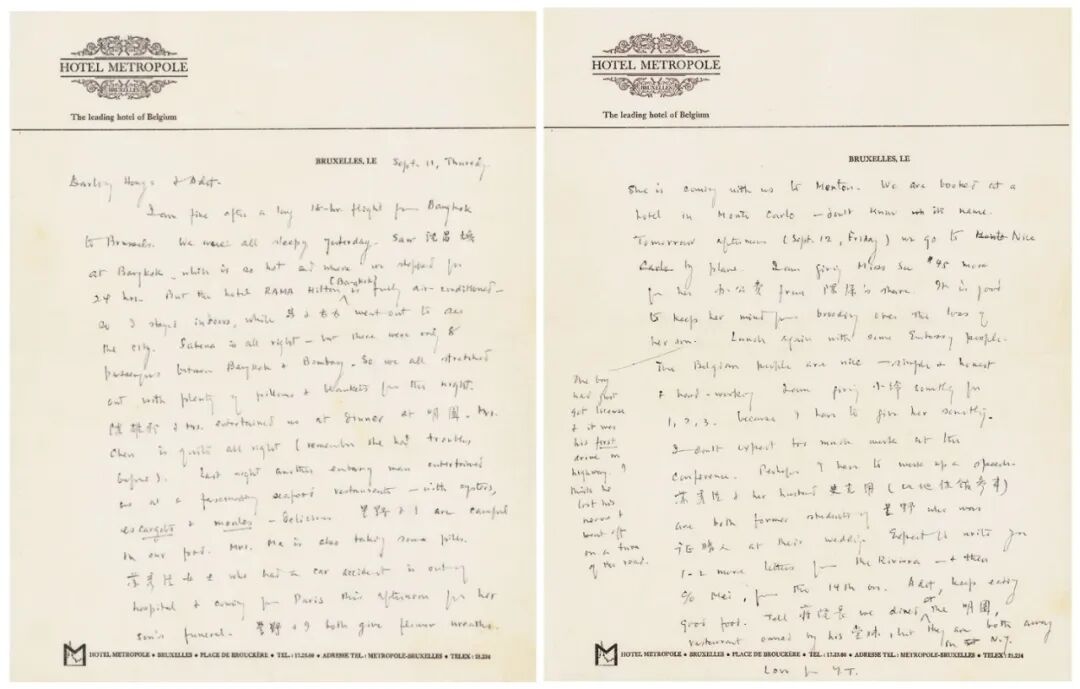 HOTEL METROPOLE
BRUXELLES
The leading hotel of Belgium
BRUXELLES, LE Sept. 11, Thursday
Darling Hongs & Adet.
I am fine after a long 15-hr. flight from Bangkok
to Brussels. We were all sleepy yesterday. Saw
at Bangkok, which is so hot and where we stopped for
24 hrs. But the hotel RAMA Hilton (Bangkok) is fully air-conditioned –
so I stayed indoors, while went out to see
the city. Sabena is all right – but there were only 8
passengers between Bangkok & Bombay. So we all stretched
out with plenty of pillows & blankets for the night.
& Mrs. entertained us at dinner at 明園. Mrs.
Chen is quite all right (remember she had troubles
before). Last night another embassy man entertained
us at a seafood restaurants – with oysters,
escargots & moules – delicious. 星野 & I are careful
in our food. Mrs. Ma is also taking some pills.
who had a car accident is out of
hospital & coming from Paris this afternoon for her
son's funeral. 星野 & I both give flower wreaths.
HOTEL METROPOLE • BRUXELLES • PLACE DE BROUCKÈRE • TEL.: 17.23.00 • ADRESSE TEL.: METROPOLE-BRUXELLES • TELEX: 21.234
HOTEL METROPOLE
BRUXELLES
The leading hotel of Belgium
BRUXELLES, LE
She is coming with us to Menton. We are booked at a
hotel in Monte Carlo – don't know its name.
Tomorrow afternoon (Sept. 12, Friday) we go to Nice
by plane. I am giving Miss Su $45 more
for her 办公费 from share. It is good
to keep her mind from brooding over the loss of
her son. Lunch again with some Embassy people.
The Belgian people are nice – simple & honest
& hard-working. I am giving something for
1, 2, 3. because I have to give her something.
I don't expect too much work at the
conference. Perhaps I have to make up a speech.
& her husband
are both former students of 星野 who was
at their wedding. Expect to write you
1-2 more letters from the Riviera – & then
c/o Mei, from the 19th on. Adet, keep eating
good food. Tell we dined at the 明園,
restaurant owned by his but they are both away
in N.Y.
Love from Y.T.
The boy
had just
got license
& it was
his first
drive on
highway. I
think he
lost his
nerve &
went off
on a turn
of the road.
HOTEL METROPOLE • BRUXELLES • PLACE DE BROUCKÈRE • TEL.: 17.23.00 • ADRESSE TEL.: METROPOLE-BRUXELLES • TELEX: 21.234